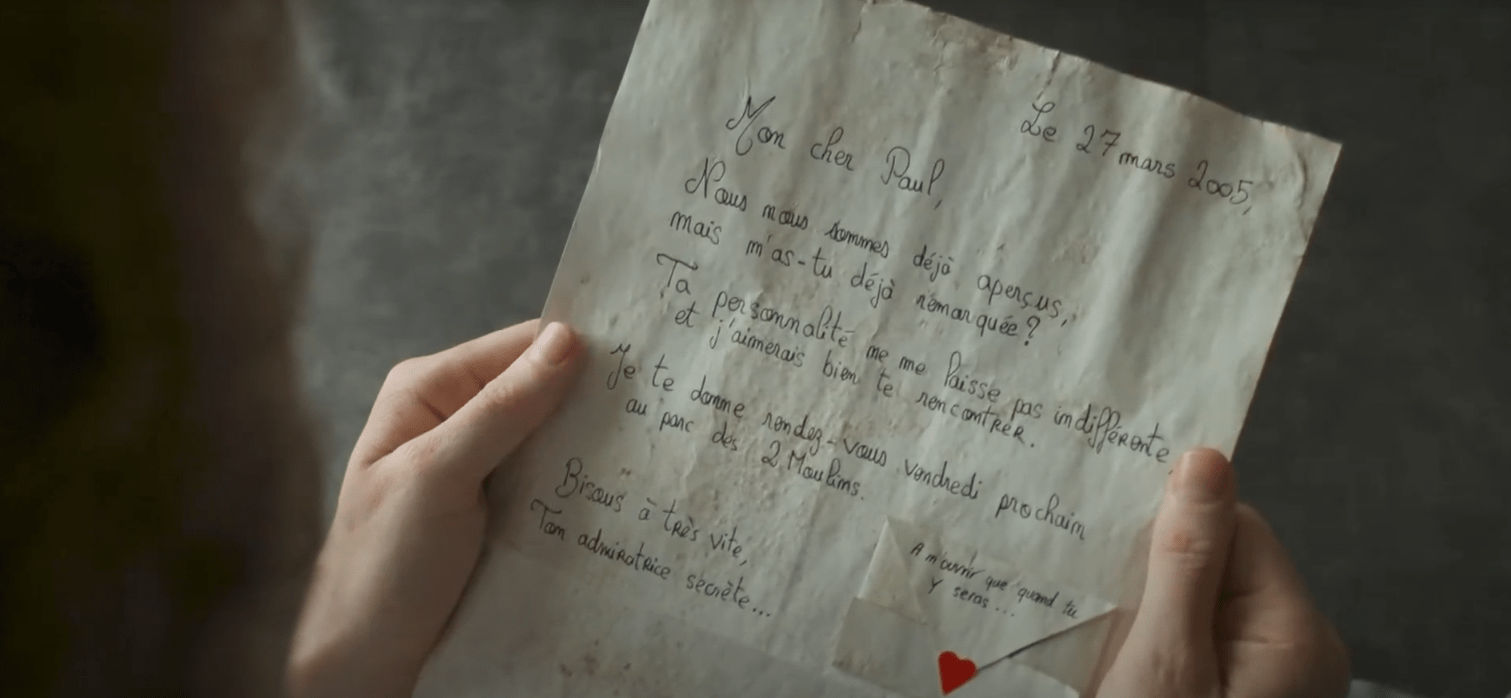 Le 27 mars 2005,
Mon cher Paul,
Nous nous sommes déjà aperçus,
mais m'as-tu déjà remarquée?
Ta personnalité ne me laisse pas indifférente,
et j'aimerais bien te rencontrer.
Je te donne rendez-vous vendredi prochain
au parc des 2 Moulins.
Bisous à très vite,
Ton admiratrice secrète...
A n'ouvrir que quand tu
y seras...